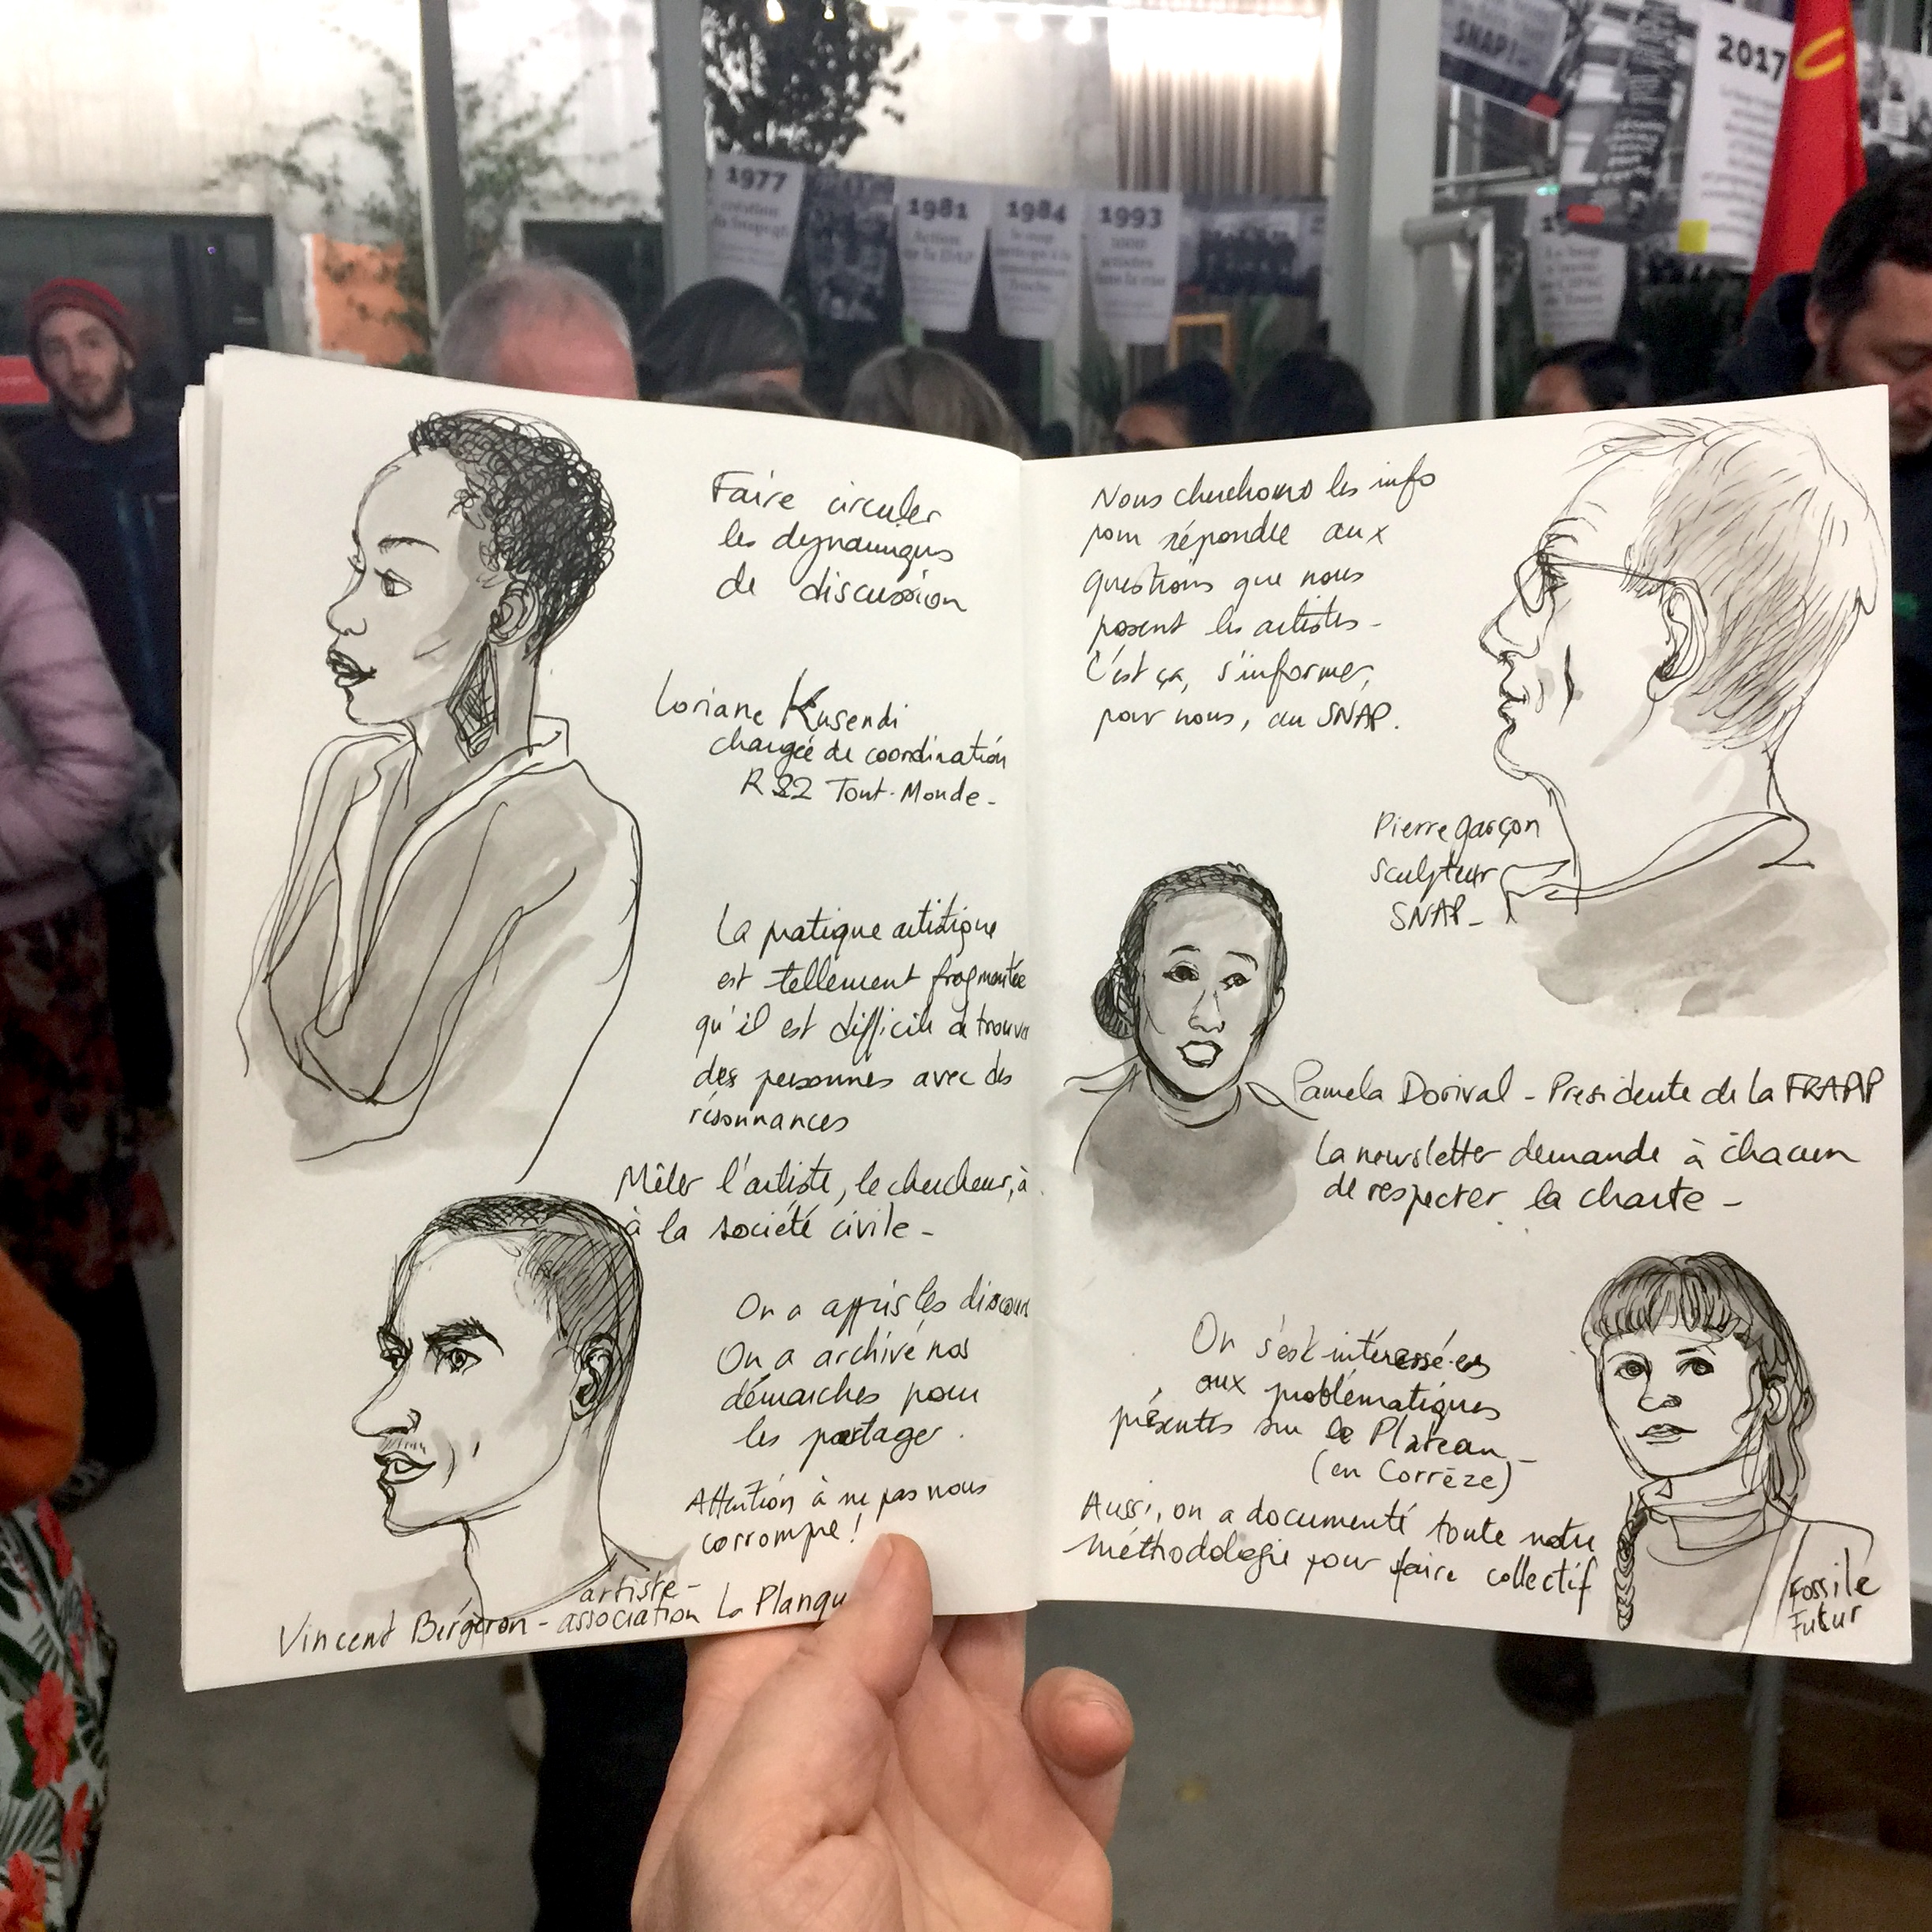 SNAP!
2017
1977
création
du Snapcgt
1981
Action
1984
1993
Faire circuler
les dynamiques
de discussion
Loriane Kusendi
chargée de coordination
Tout-Monde-
La pratique artistique
est tellement fragmentée
qu'il est difficile à trouver
des personnes avec des
résonnances
Mêler l'artiste, le chercheur, à
à la société civile -
On a appris les discours
On a archivé nos
démarches pour
les partager.
Attention à ne pas nous
corrompre !
artiste-
Vincent Bergeron - association La Planqu
Nous cherchons les info
pour répondre aux
questions que nous
posent les artistes -
C'est ça, s'informer,
pour nous, au SNAP.
Pierre garçon
Sculpteur
SNAP-
Pamela Dorival - Presidente de la FRAAP
La newsletter demande à chacun
de respecter la charte -
On s'est intéressé·es
aux problématiques
présentes sur le Plateau -
(en Corrèze)
Aussi, on a documenté toute notre
méthodologie pour faire collectif
Fossile
Futur